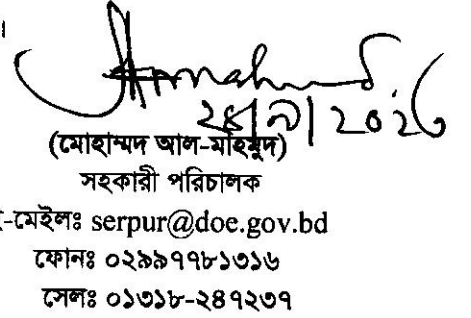 ।
২৪|৯|২০২৩
(মোহাম্মদ আল-মাহমুদ)
সহকারী পরিচালক
-মেইলঃ serpur@doe.gov.bd
ফোনঃ ০২৯৯৭৭৮১৩১৬
সেল ঃ ০১৩১৮-২৪৭২৩৭